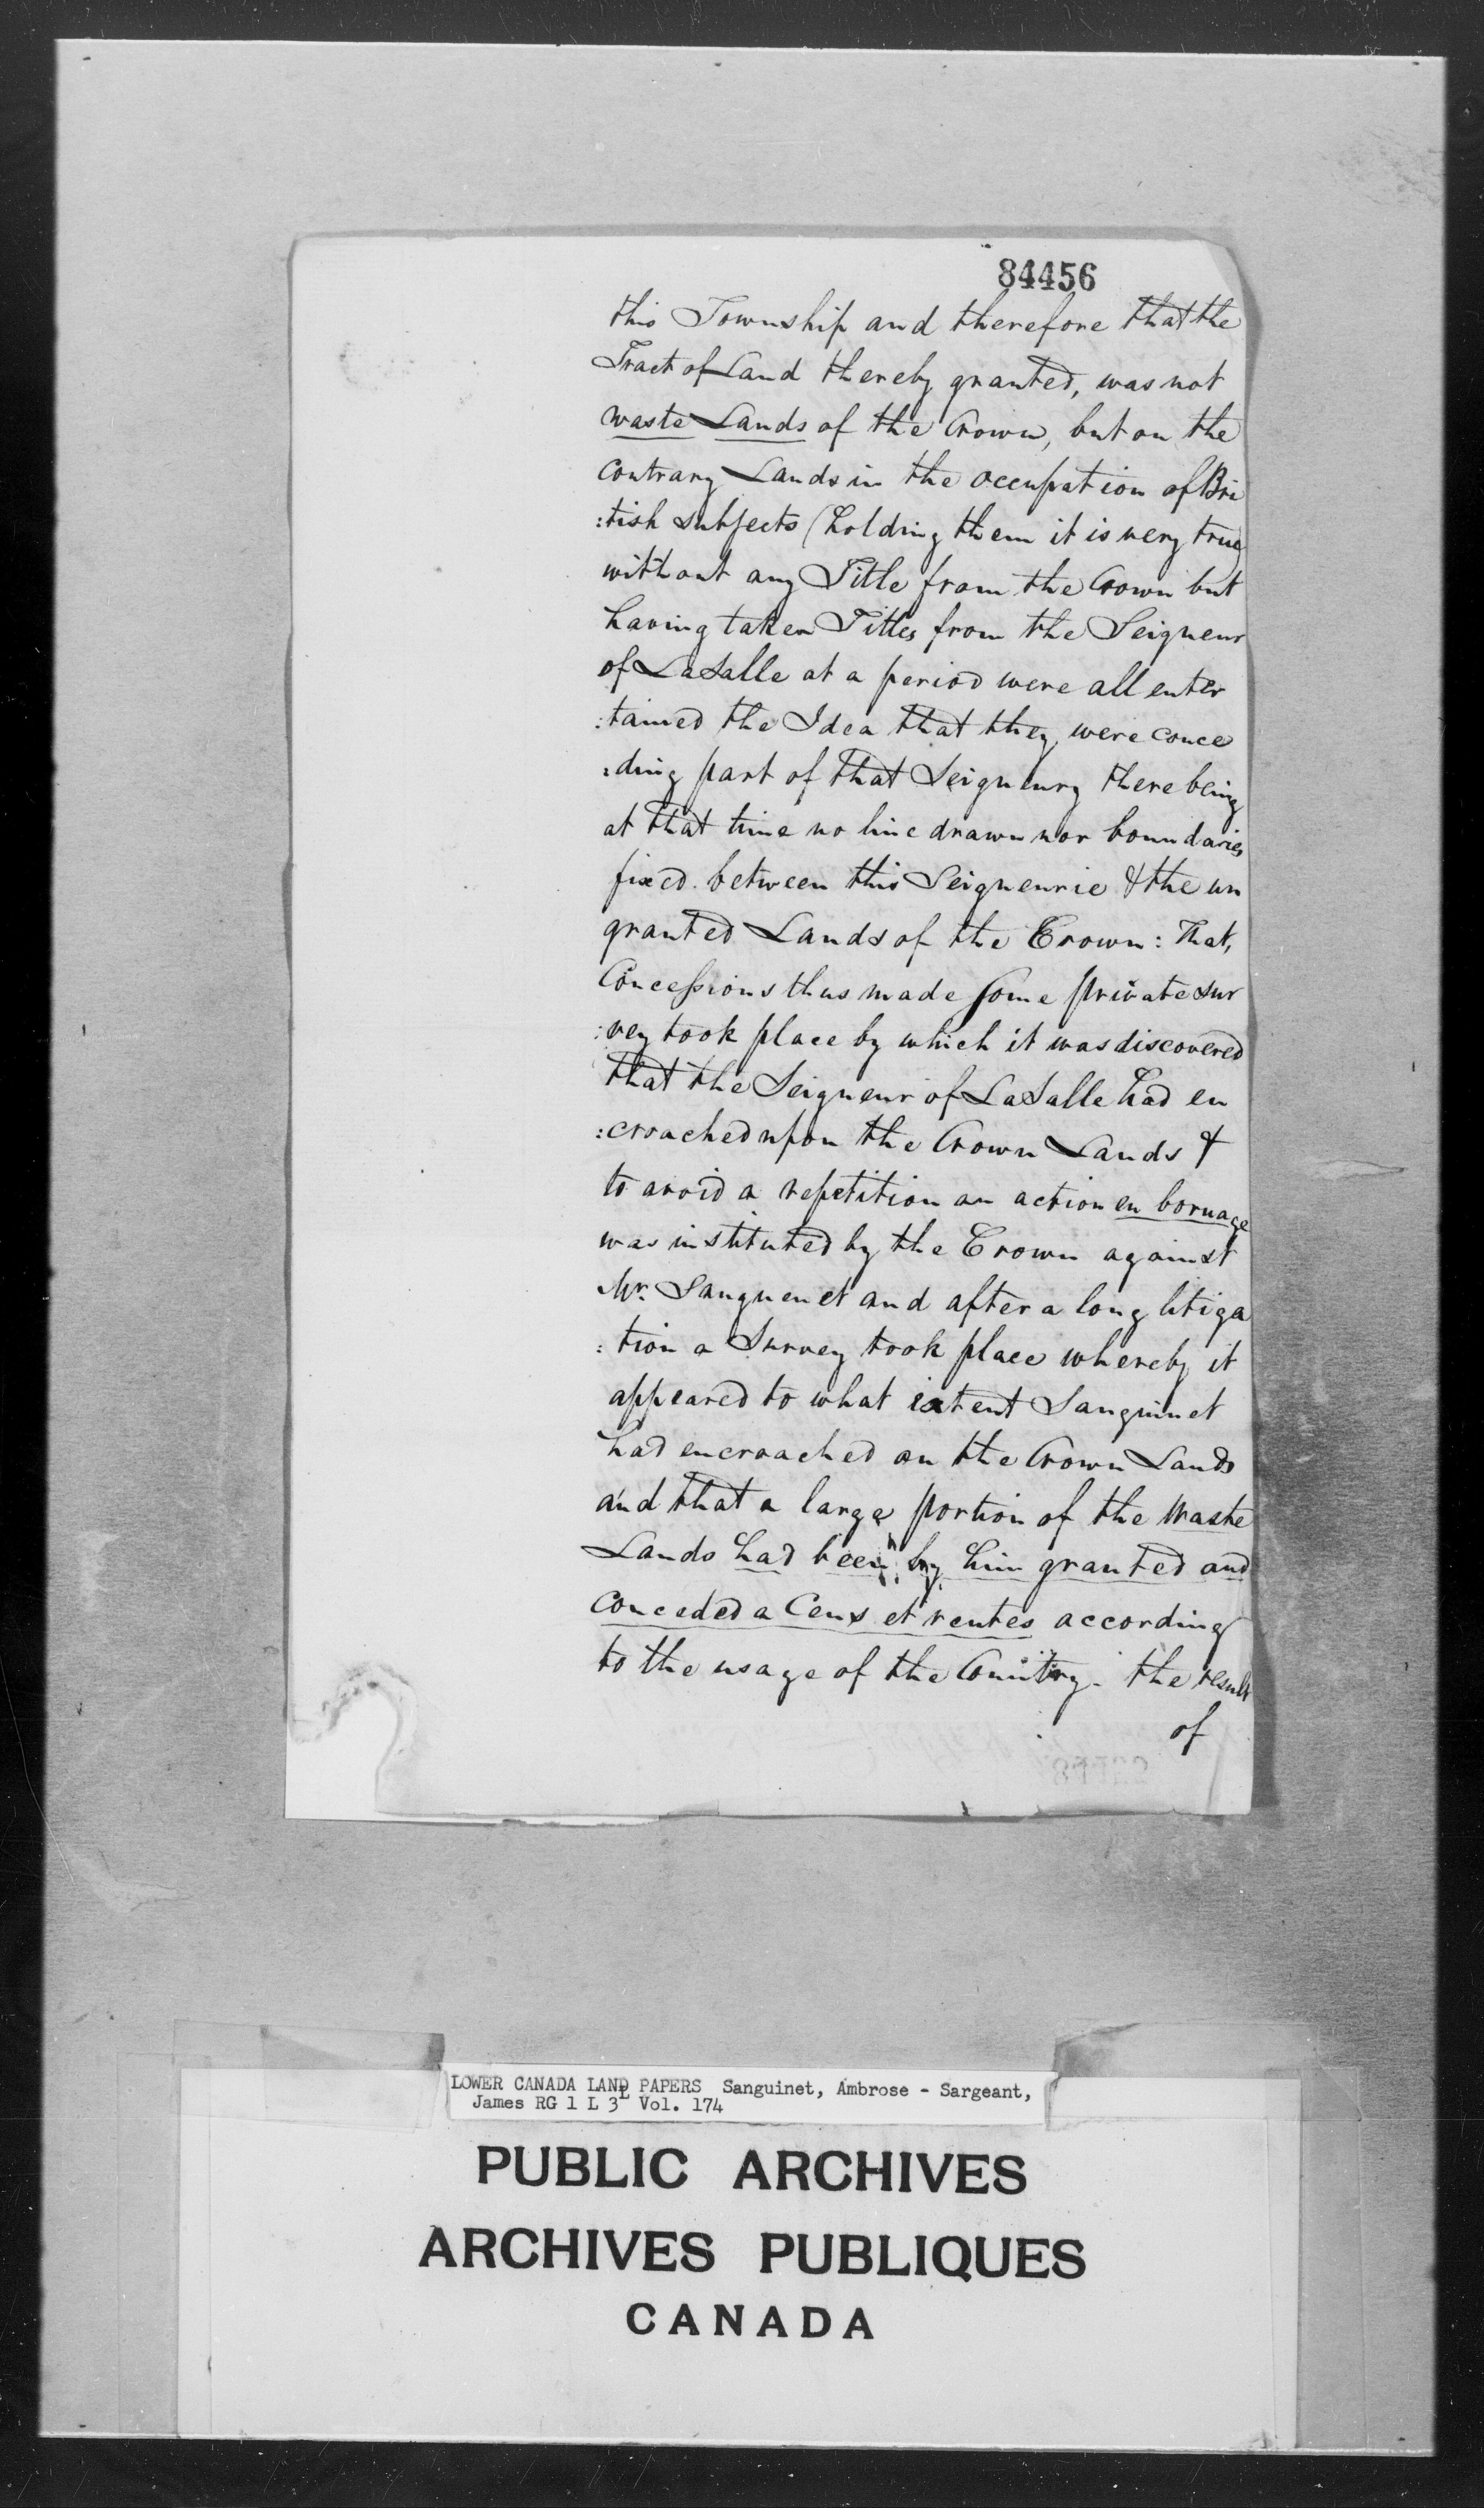 84456
this Township and therefore that the
Tract of Land thereby granted, was not
waste Lands of the Crown, but on the
contrary Lands in the occupation of Bri
:tish subjects (holding them it is very true)
without any Title from the Crown but
having taken Titles from the Seigneur
of LaSalle at a period were all enter
:tained the Idea that they were conce
:ding part of that Seigneury there being
at that time no line drawn nor boundaries
fixed between this Seigneurie & the un
granted Lands of the Crown: That,
Concessions thus made some private sur
:vey took place by which it was discovered
that the Seigneur of LaSalle had en
:croached upon the Crown Lands &
to avoid a repetition an action en bornage
was instituted by the Crown against
Mr. Sanguenet and after a long litiga
:tion a Survey took place whereby it
appeared to what extent Sanguinet
had encroached on the Crown Lands
and that a large portion of the Waste
Lands had been by him granted and
conceded a Cens et rentes according
to the usage of the Country. the result
of
LOWER CANADA LAND PAPERS Sanguinet, Ambrose - Sargeant,
James RG 1 L 3L Vol. 174
PUBLIC ARCHIVES
ARCHIVES PUBLIQUES
CANADA